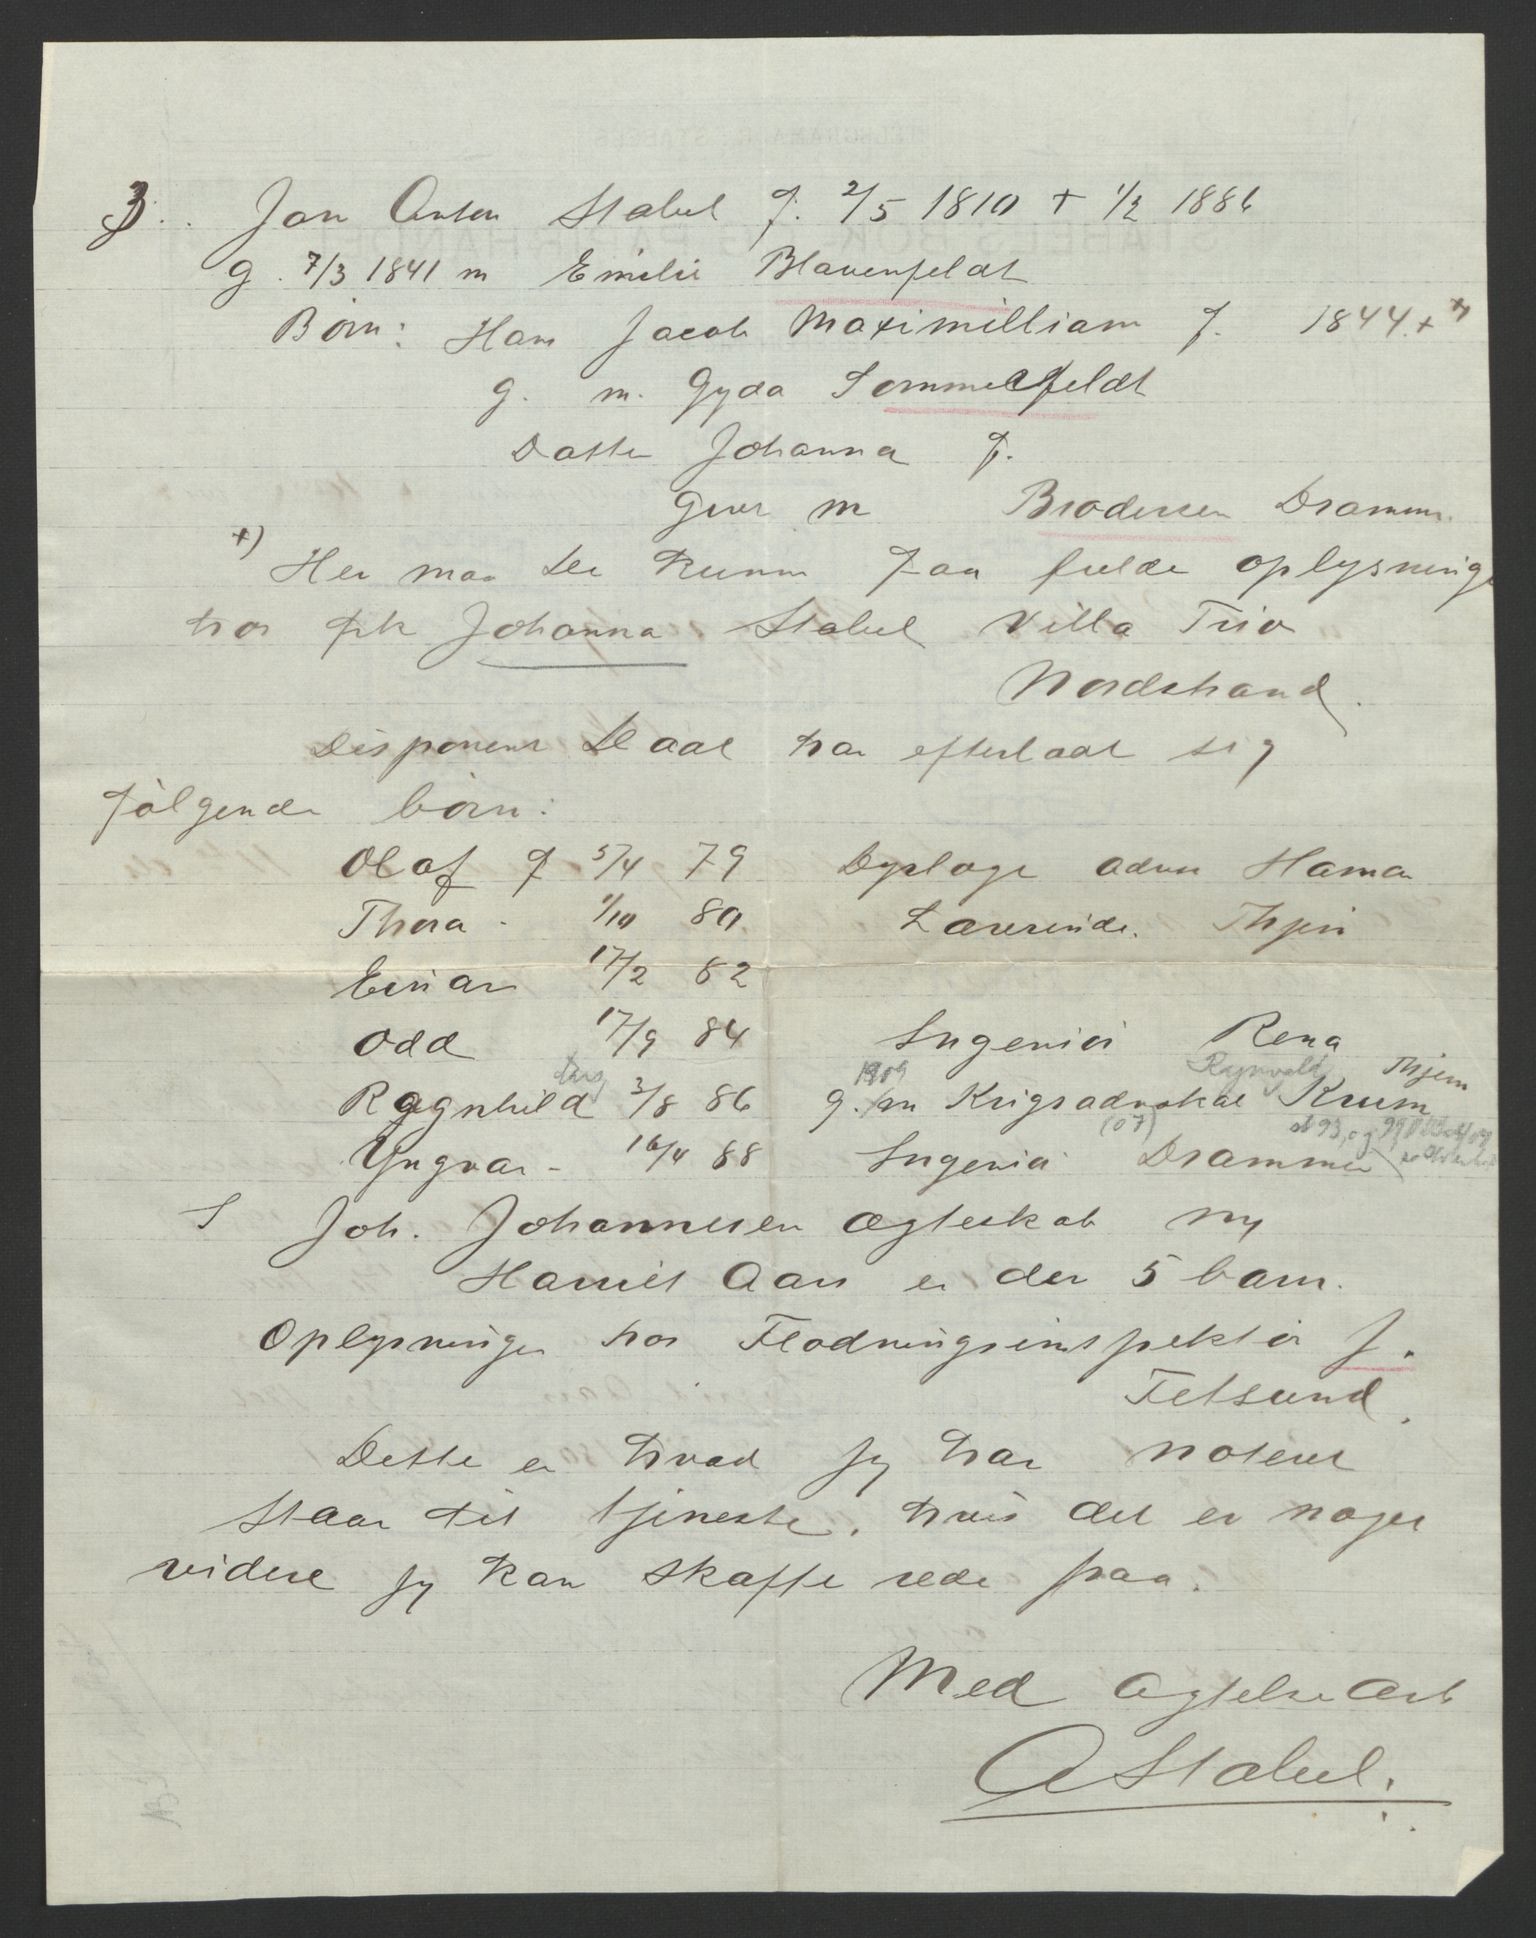 3. Jan Anton Stabel f. 2/5 1810 + 1/2 1886
g. 7/3 1841 m Emilie Blauenfeldt
Børn: Hans Jacob Maximilliam f. 1844 + x)
g. m. Gyda Sommerfeldt
Datter Johanna f.
Giver m Brodersen Drammen.
x) Her maa De kunne faa fulde oplysninge
hos frk Johanna Stabel Villa Trio
Nordstrand.
Disponent Daae har efterladt sig
følgende børn:
Olaf f 5/4 79 Dyrlæge Hamar
Thora - 1/10 80. Lærerinde. Thjem
Einar 17/2 82
Odd 17/9 84 Ingeniør Rena
Ragnhild 3/8 86 g. 1909 m Krigsadvokat Ragnvald Krum Thjem
(07)
Yngvar - 16/4 88 Ingeniør Drammen
I Joh. Johannesen ægteskab m
Harriet Aars er der 5 barn.
Oplysninger hos Flødningsinspektør J.
Fetsund.
Dette er hvad jeg har noteret
staar til tjeneste, hvis det er noget
videre jeg kan skaffe rede paa.
Med agtelse Ærb
A Stabel.